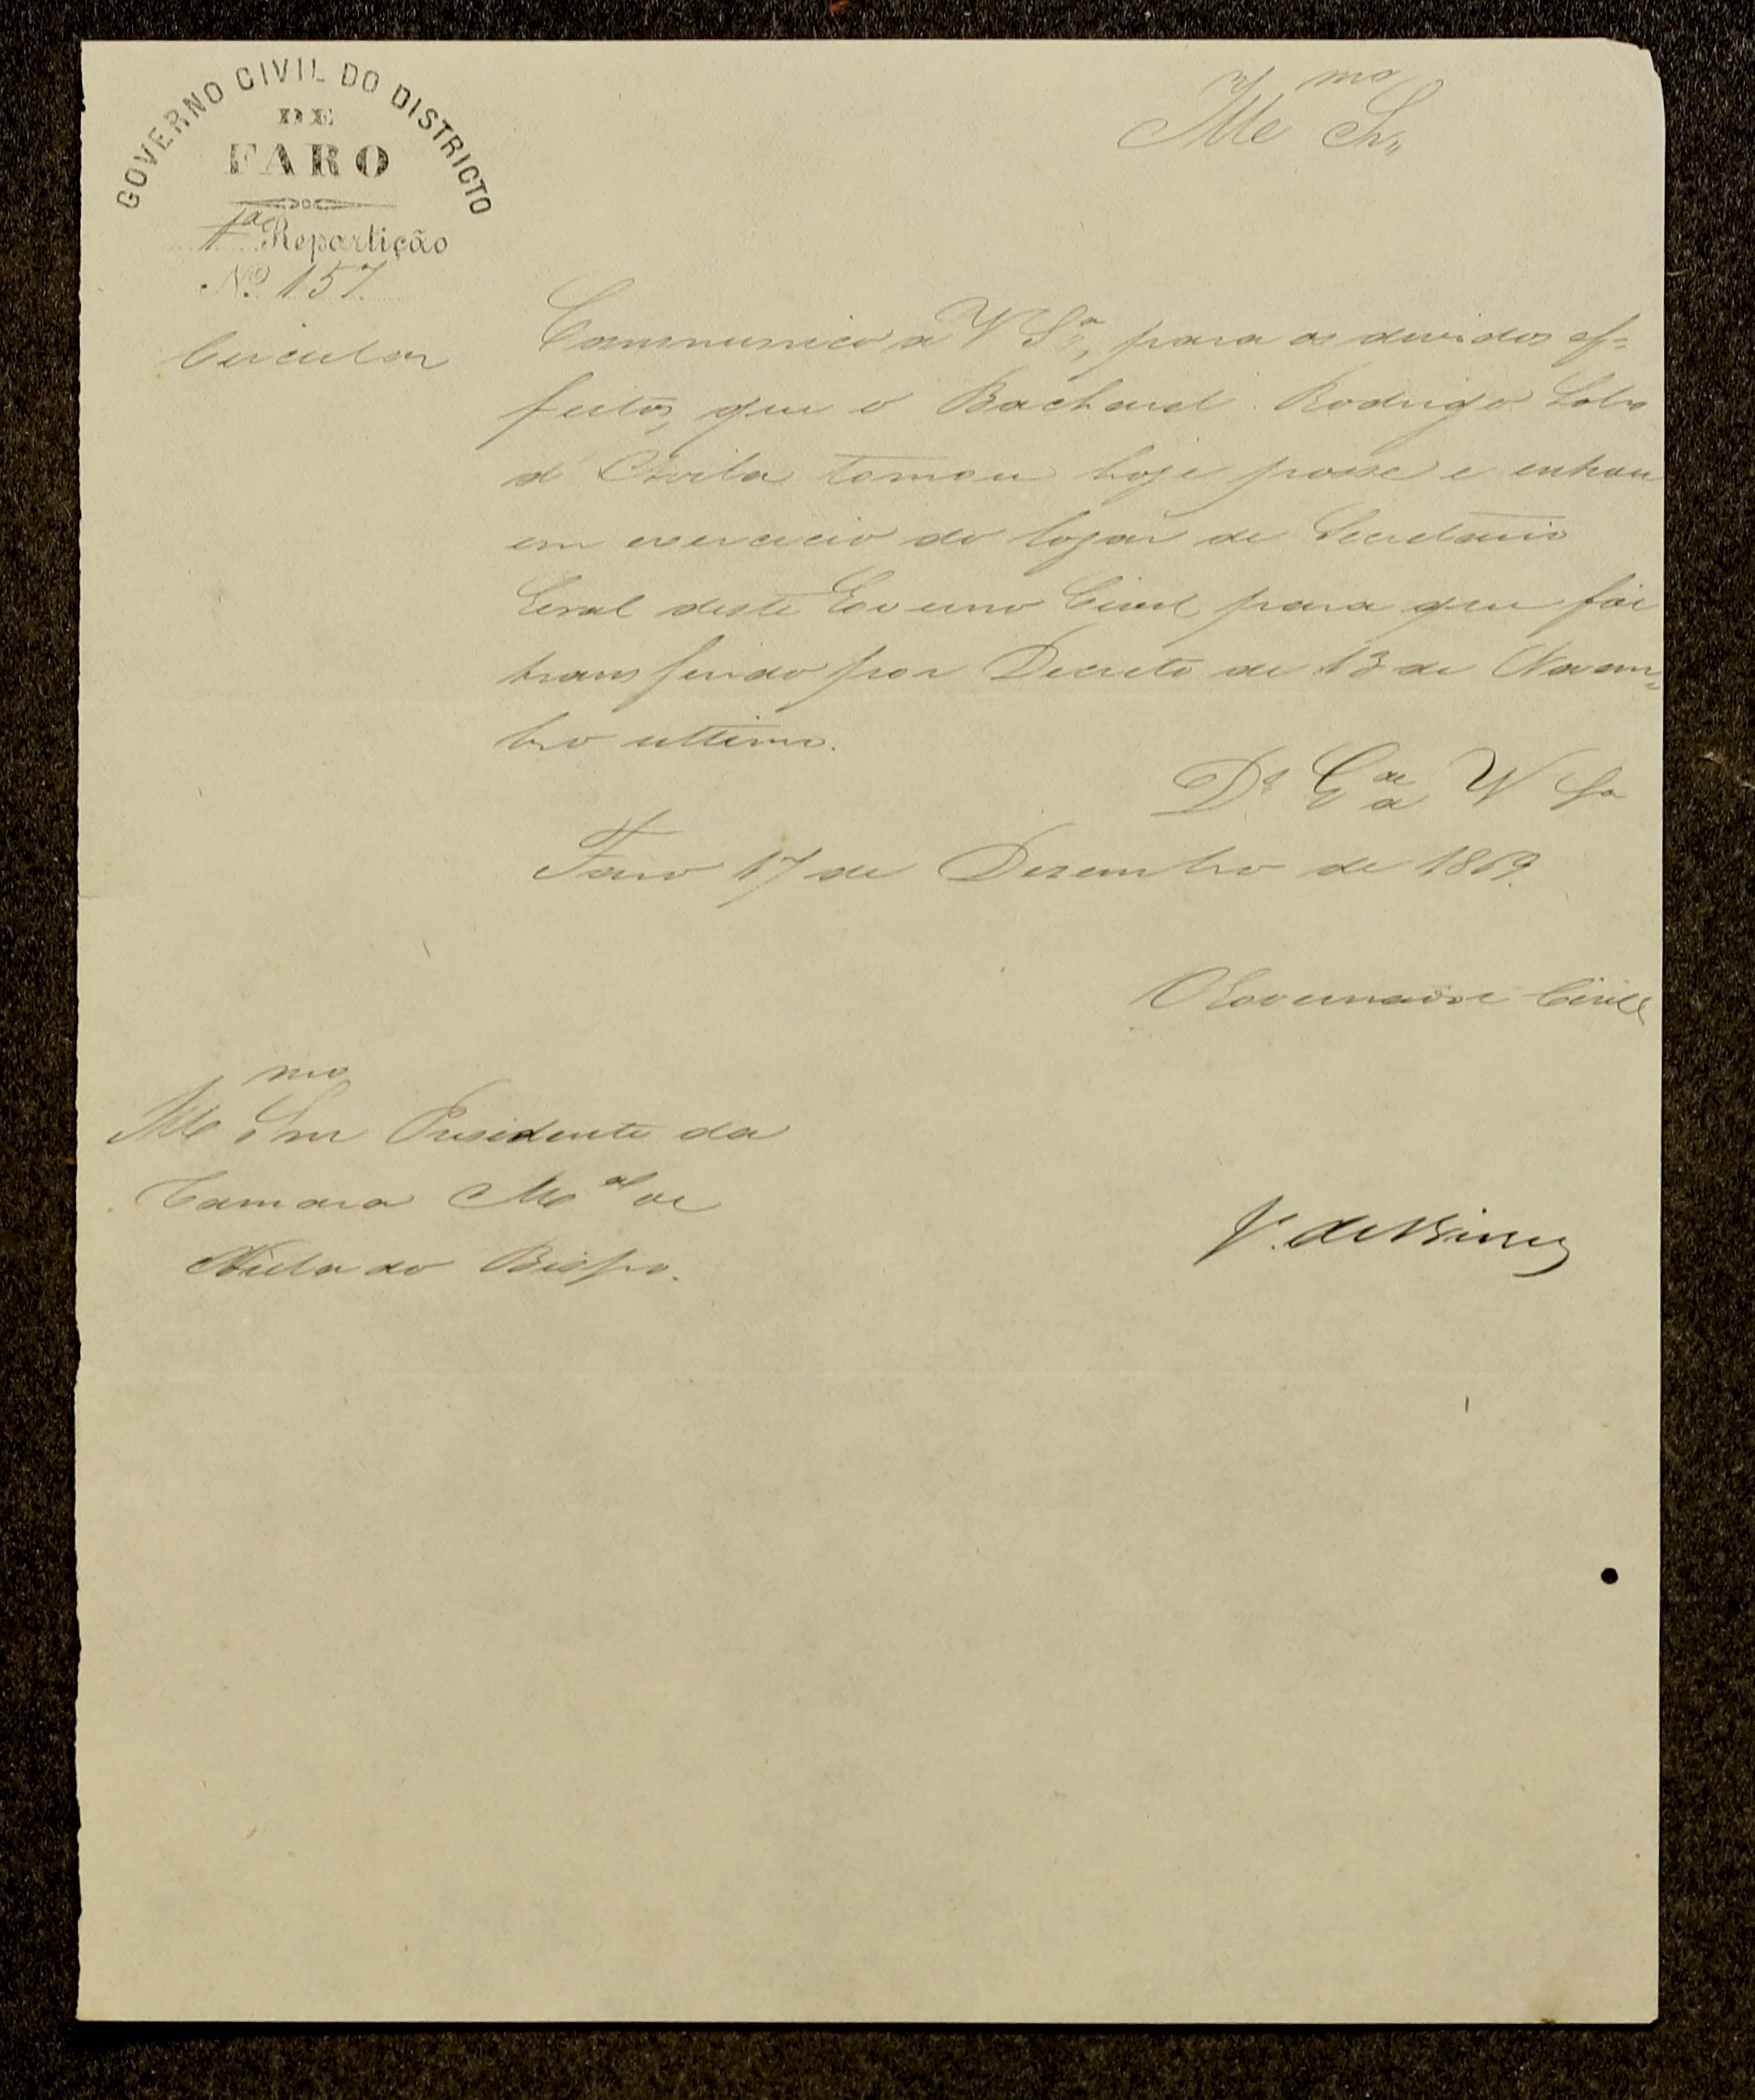 GOVERNO CIVIL DO DISTRICTO
DE
FARO
1ª Repartição
Nº 157
Circular
Illmo Sr.
Communico a V Sª, para os devidos ef=
feitos, que o Bacharel Rodrigo Lobo
d'Avila tomou hoje posse e entrou
em exercicio do logar de Secretario
Geral deste Governo Civil para que foi
transferido por Decreto de 13 de Novem=
bro ultimo.
Ds Gde a V Sa
Faro 17 de Dezembro de 1869.
O Governador Civil
Illmo Snr Presidente da
Camara Mal de
Villa do Bispo.